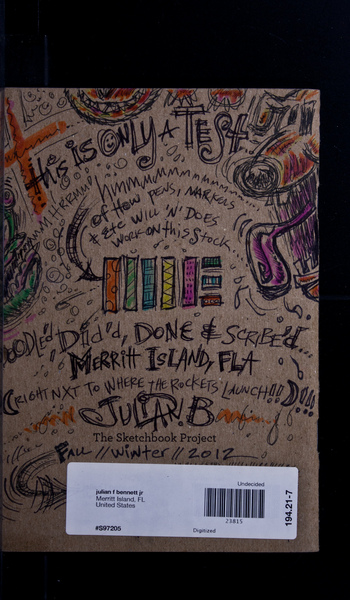 this is ONLY A TEST
hmmmmmmmmm........
of How PENS, MARKERS
& Etc WILL 'N' DOES
WORK ON this Stock.
DOODLEd DIId'd, DONE & SCRIBE'd...
MERRITT ISLAND, FLA
(RIGHT NXT TO WHERE the ROCKETS LAUNCH!!!)!!!
JULIAN. B
The Sketchbook Project
FALL // Winter // 2012
Undecided
julian f bennett jr
Merritt Island, FL
United States
23815
#S97205
Digitized
194.21-7